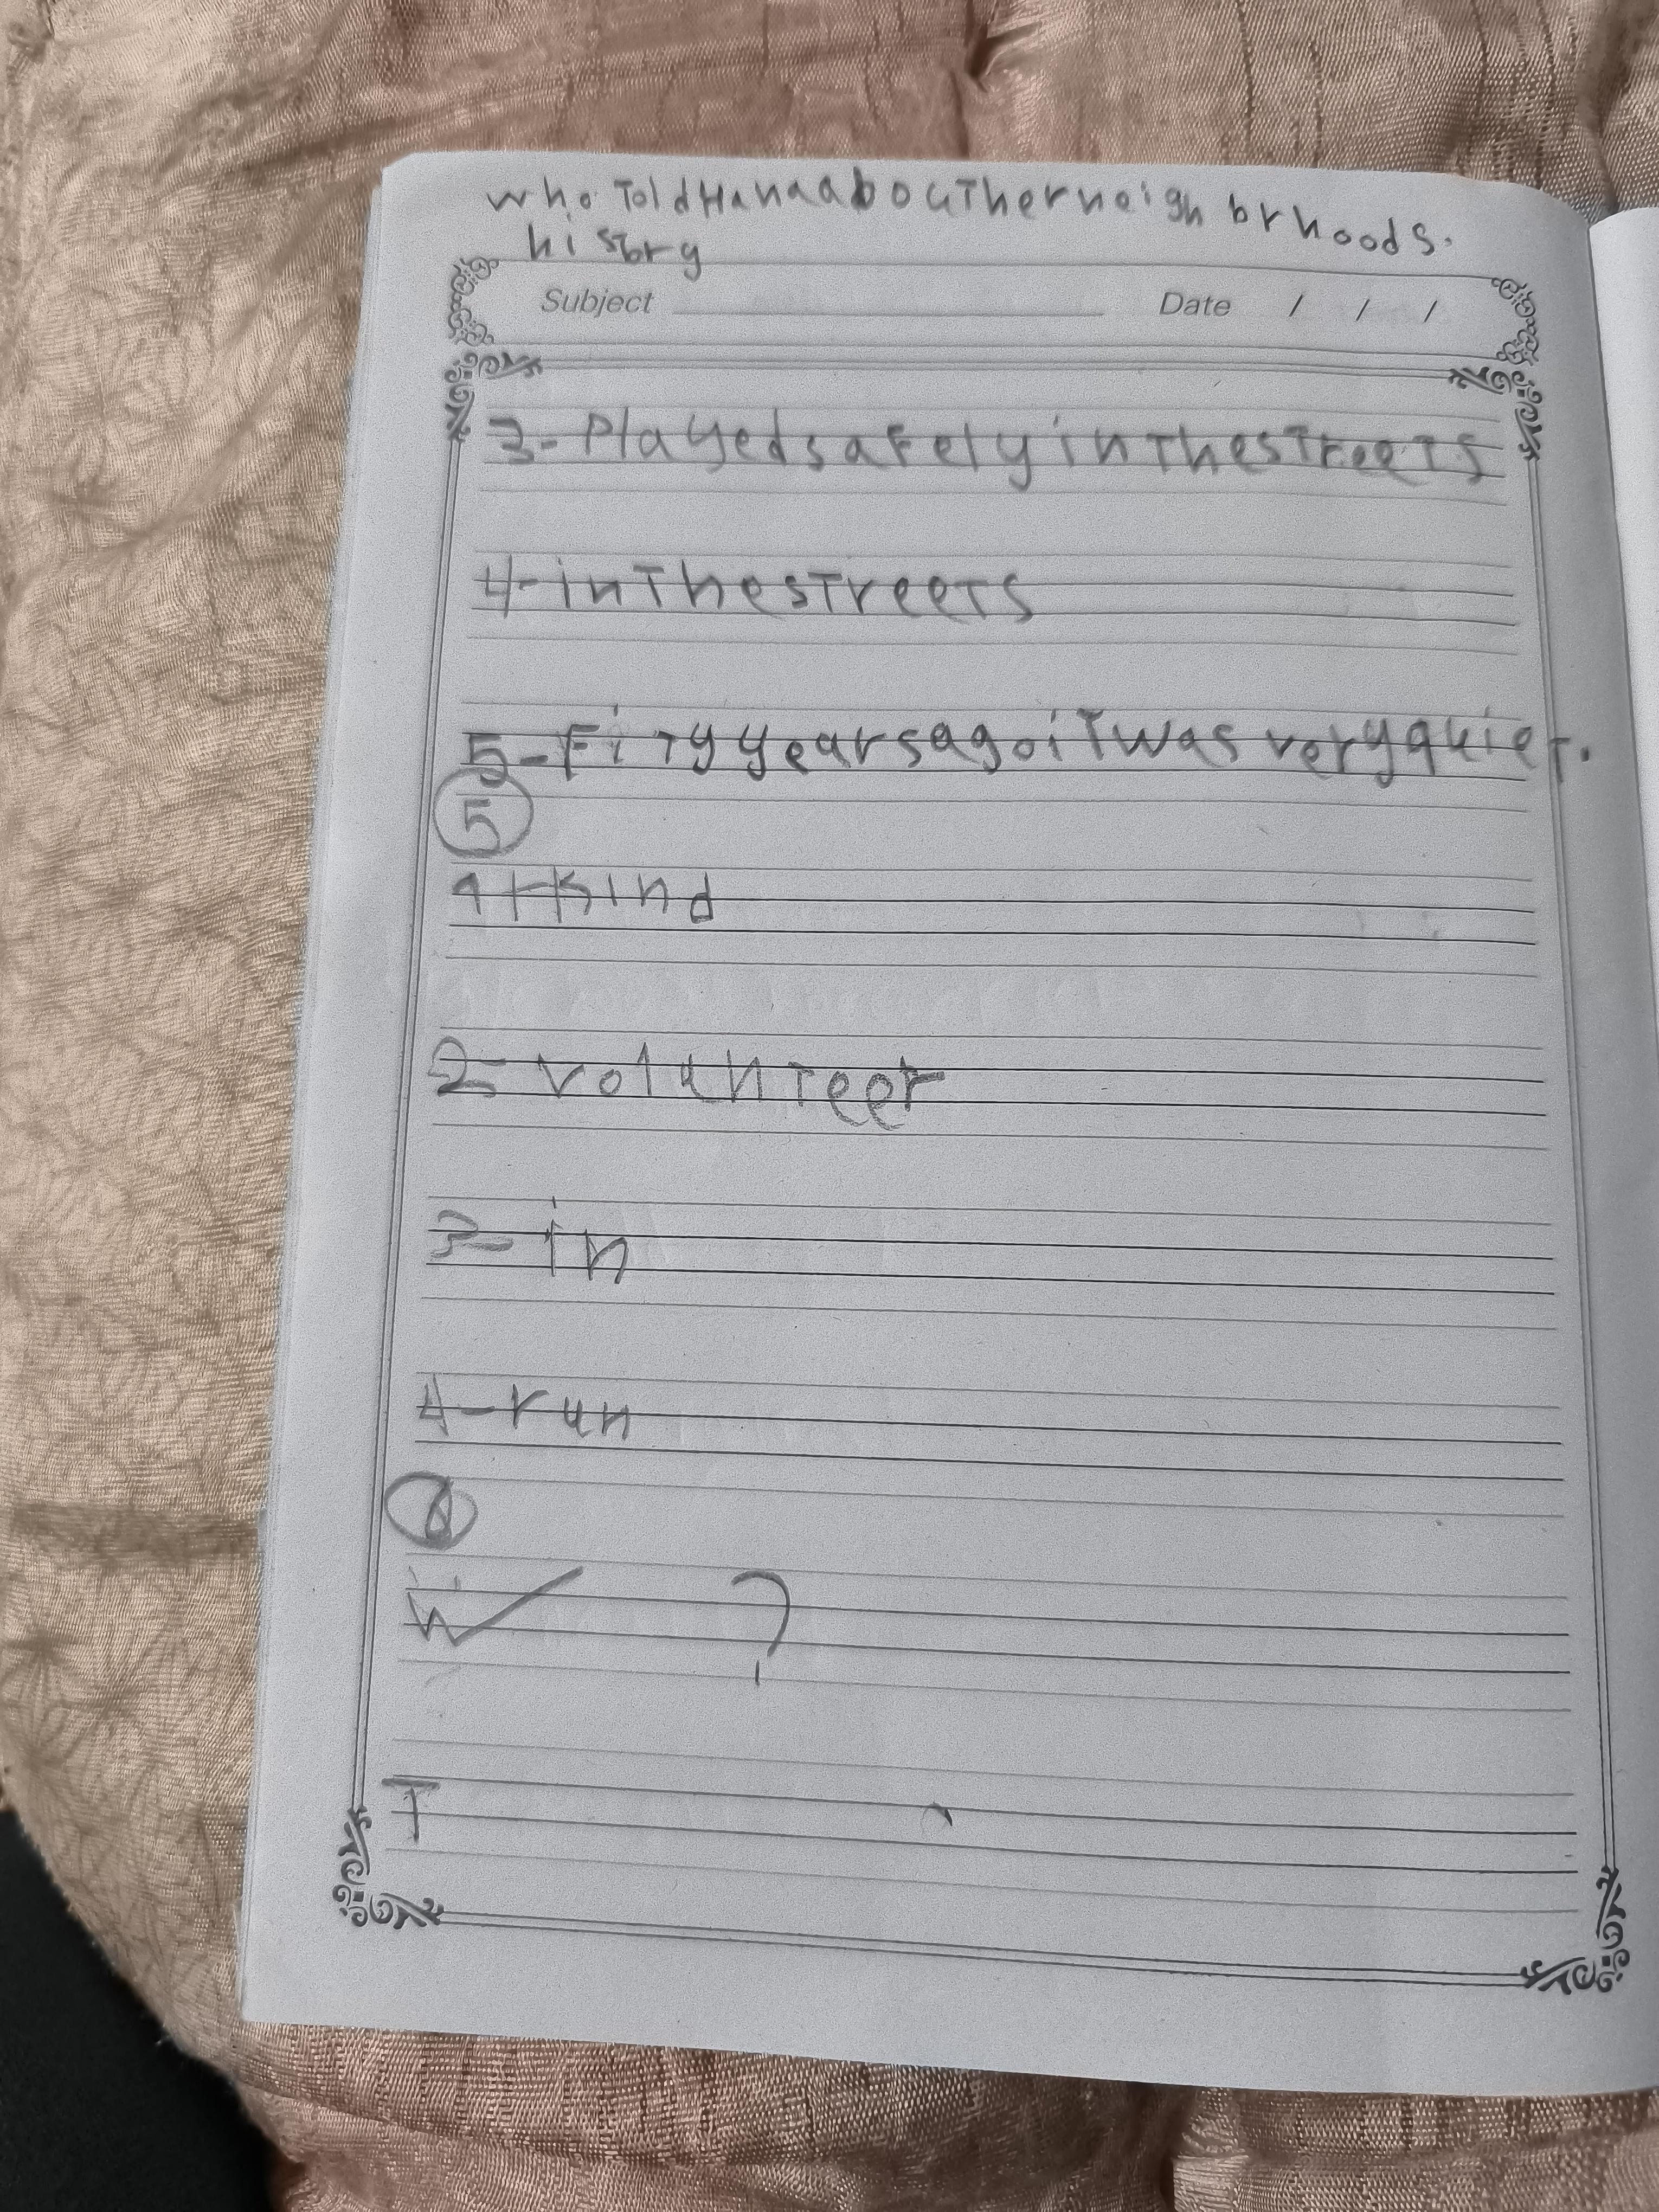 who Told Hana about her neigh brhoods.
history
Subject Date / / /
3- Played safely in The streets
4- in The streets
5- Fity years ago it was very quiet.
5
kind
2- volunteer
3- in
4- run
?
T